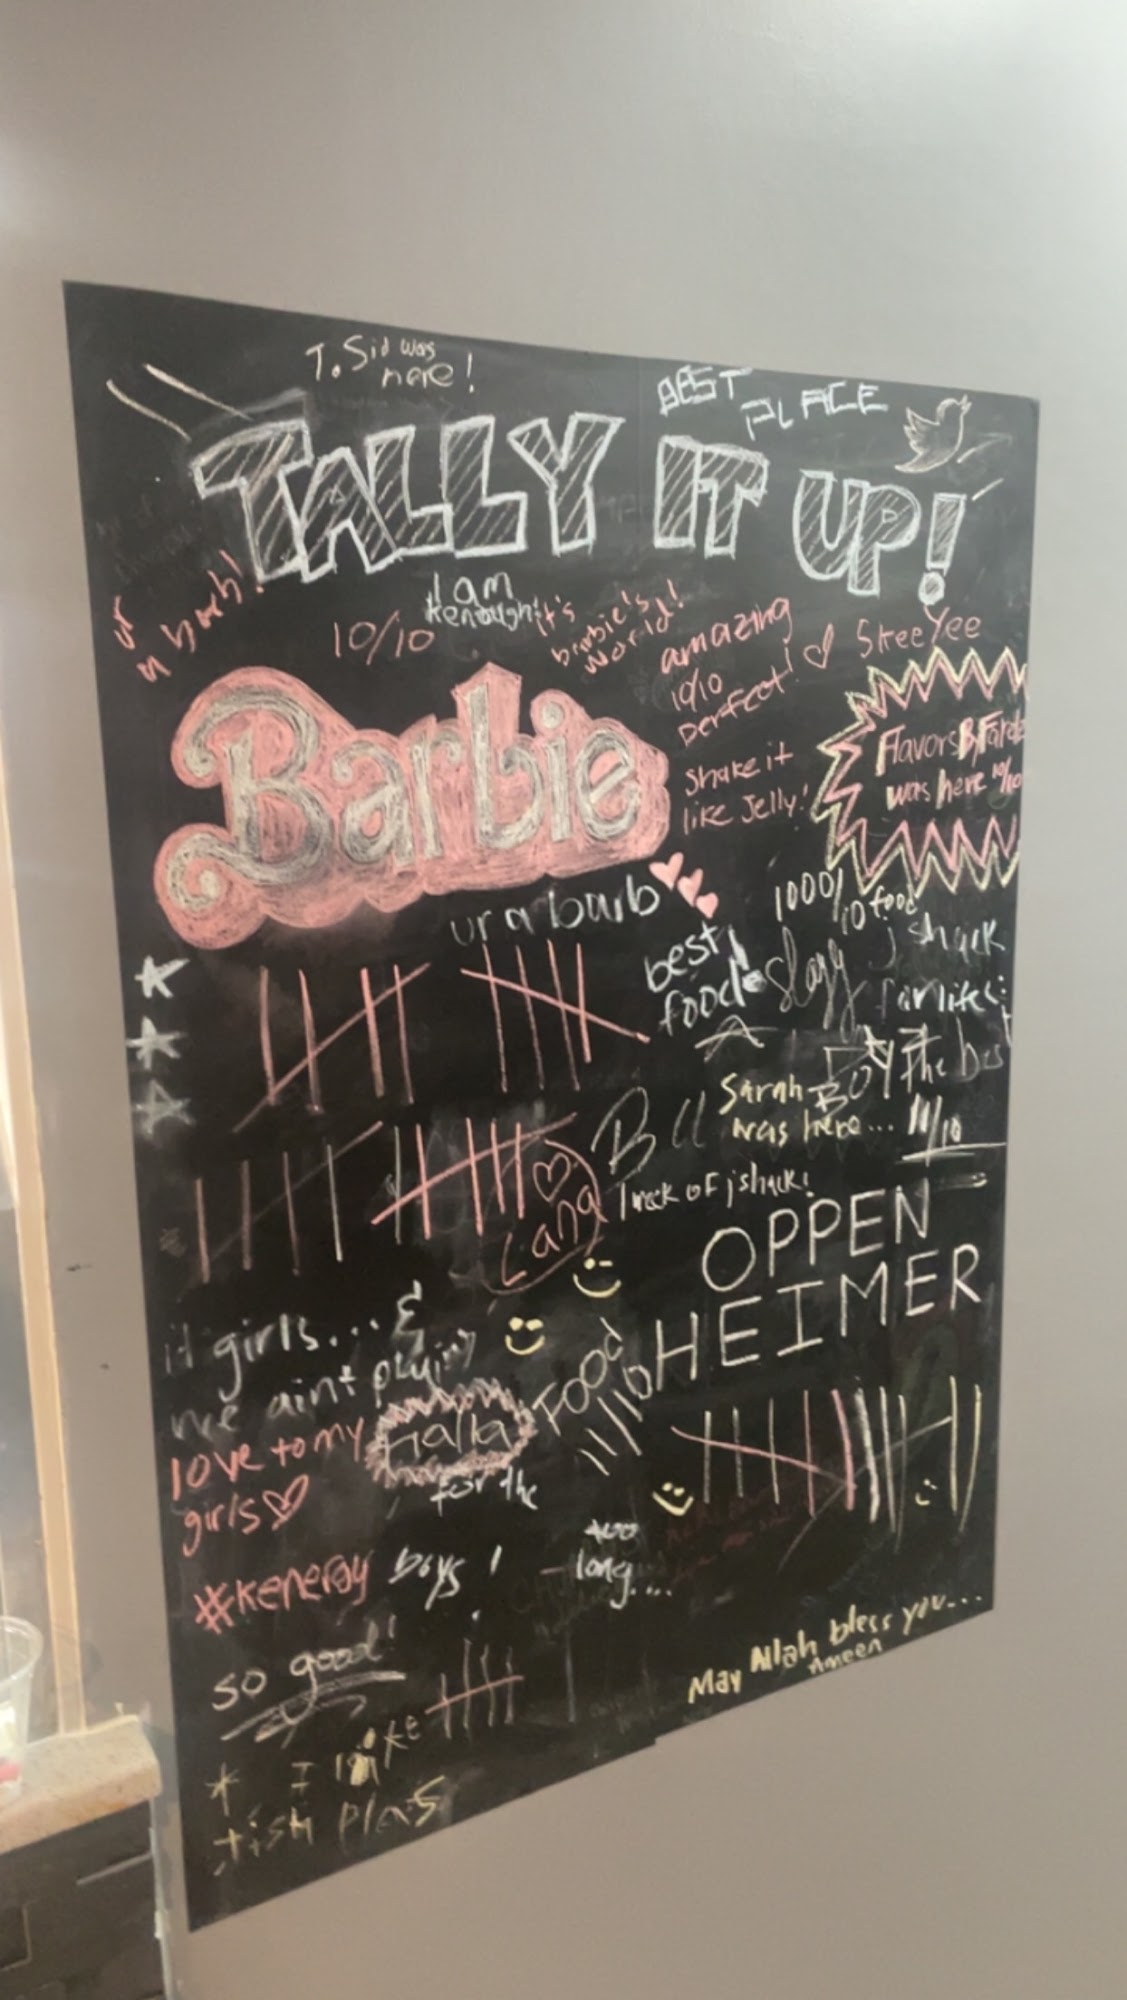 T. Sid was
here!
BEST
PLACE
TALLY IT UP!
I am
kenough!
10/10
it's
barbie's
world!
amazing
10/10
perfect!
SkeeYee
Barbie
shake it
like Jelly!
Flavors By
was here 10/10
ur a barb
1000/10 food
best
food!
Slayy
j shack
for life
BOY
The best
Sarah
was here...
11/10
1 week of j shack!
Lana
OPPEN
HEIMER
it girls... &
we aint playin
FOOD
10
love to my
girls
Halla
for the
#kenergy boys!
too
long....
so good!
May Allah bless you...
Ameen
I like
fish